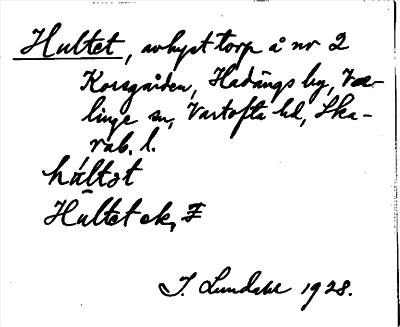 Hultet, avhyst torp å nr 2
Korsgården, Hadängs by, Var-
linge sn, Vartofta hd, Ska-
rab. l.
hu̇ltət
Hultet ek, F
I. Lundahl 1928.